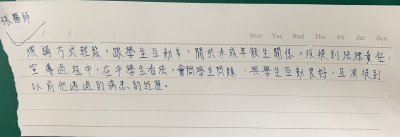 張醫師
Mon Tue Wed Thu Fri Sat Sun
演講方式輕鬆,跟學生互動多,關於未成年發生關係,後提到法律責任,
宣導過程中,在乎學生看法,會問學生問題,與學生互動良好,且有提到
以前他遇過的病患的經歷。